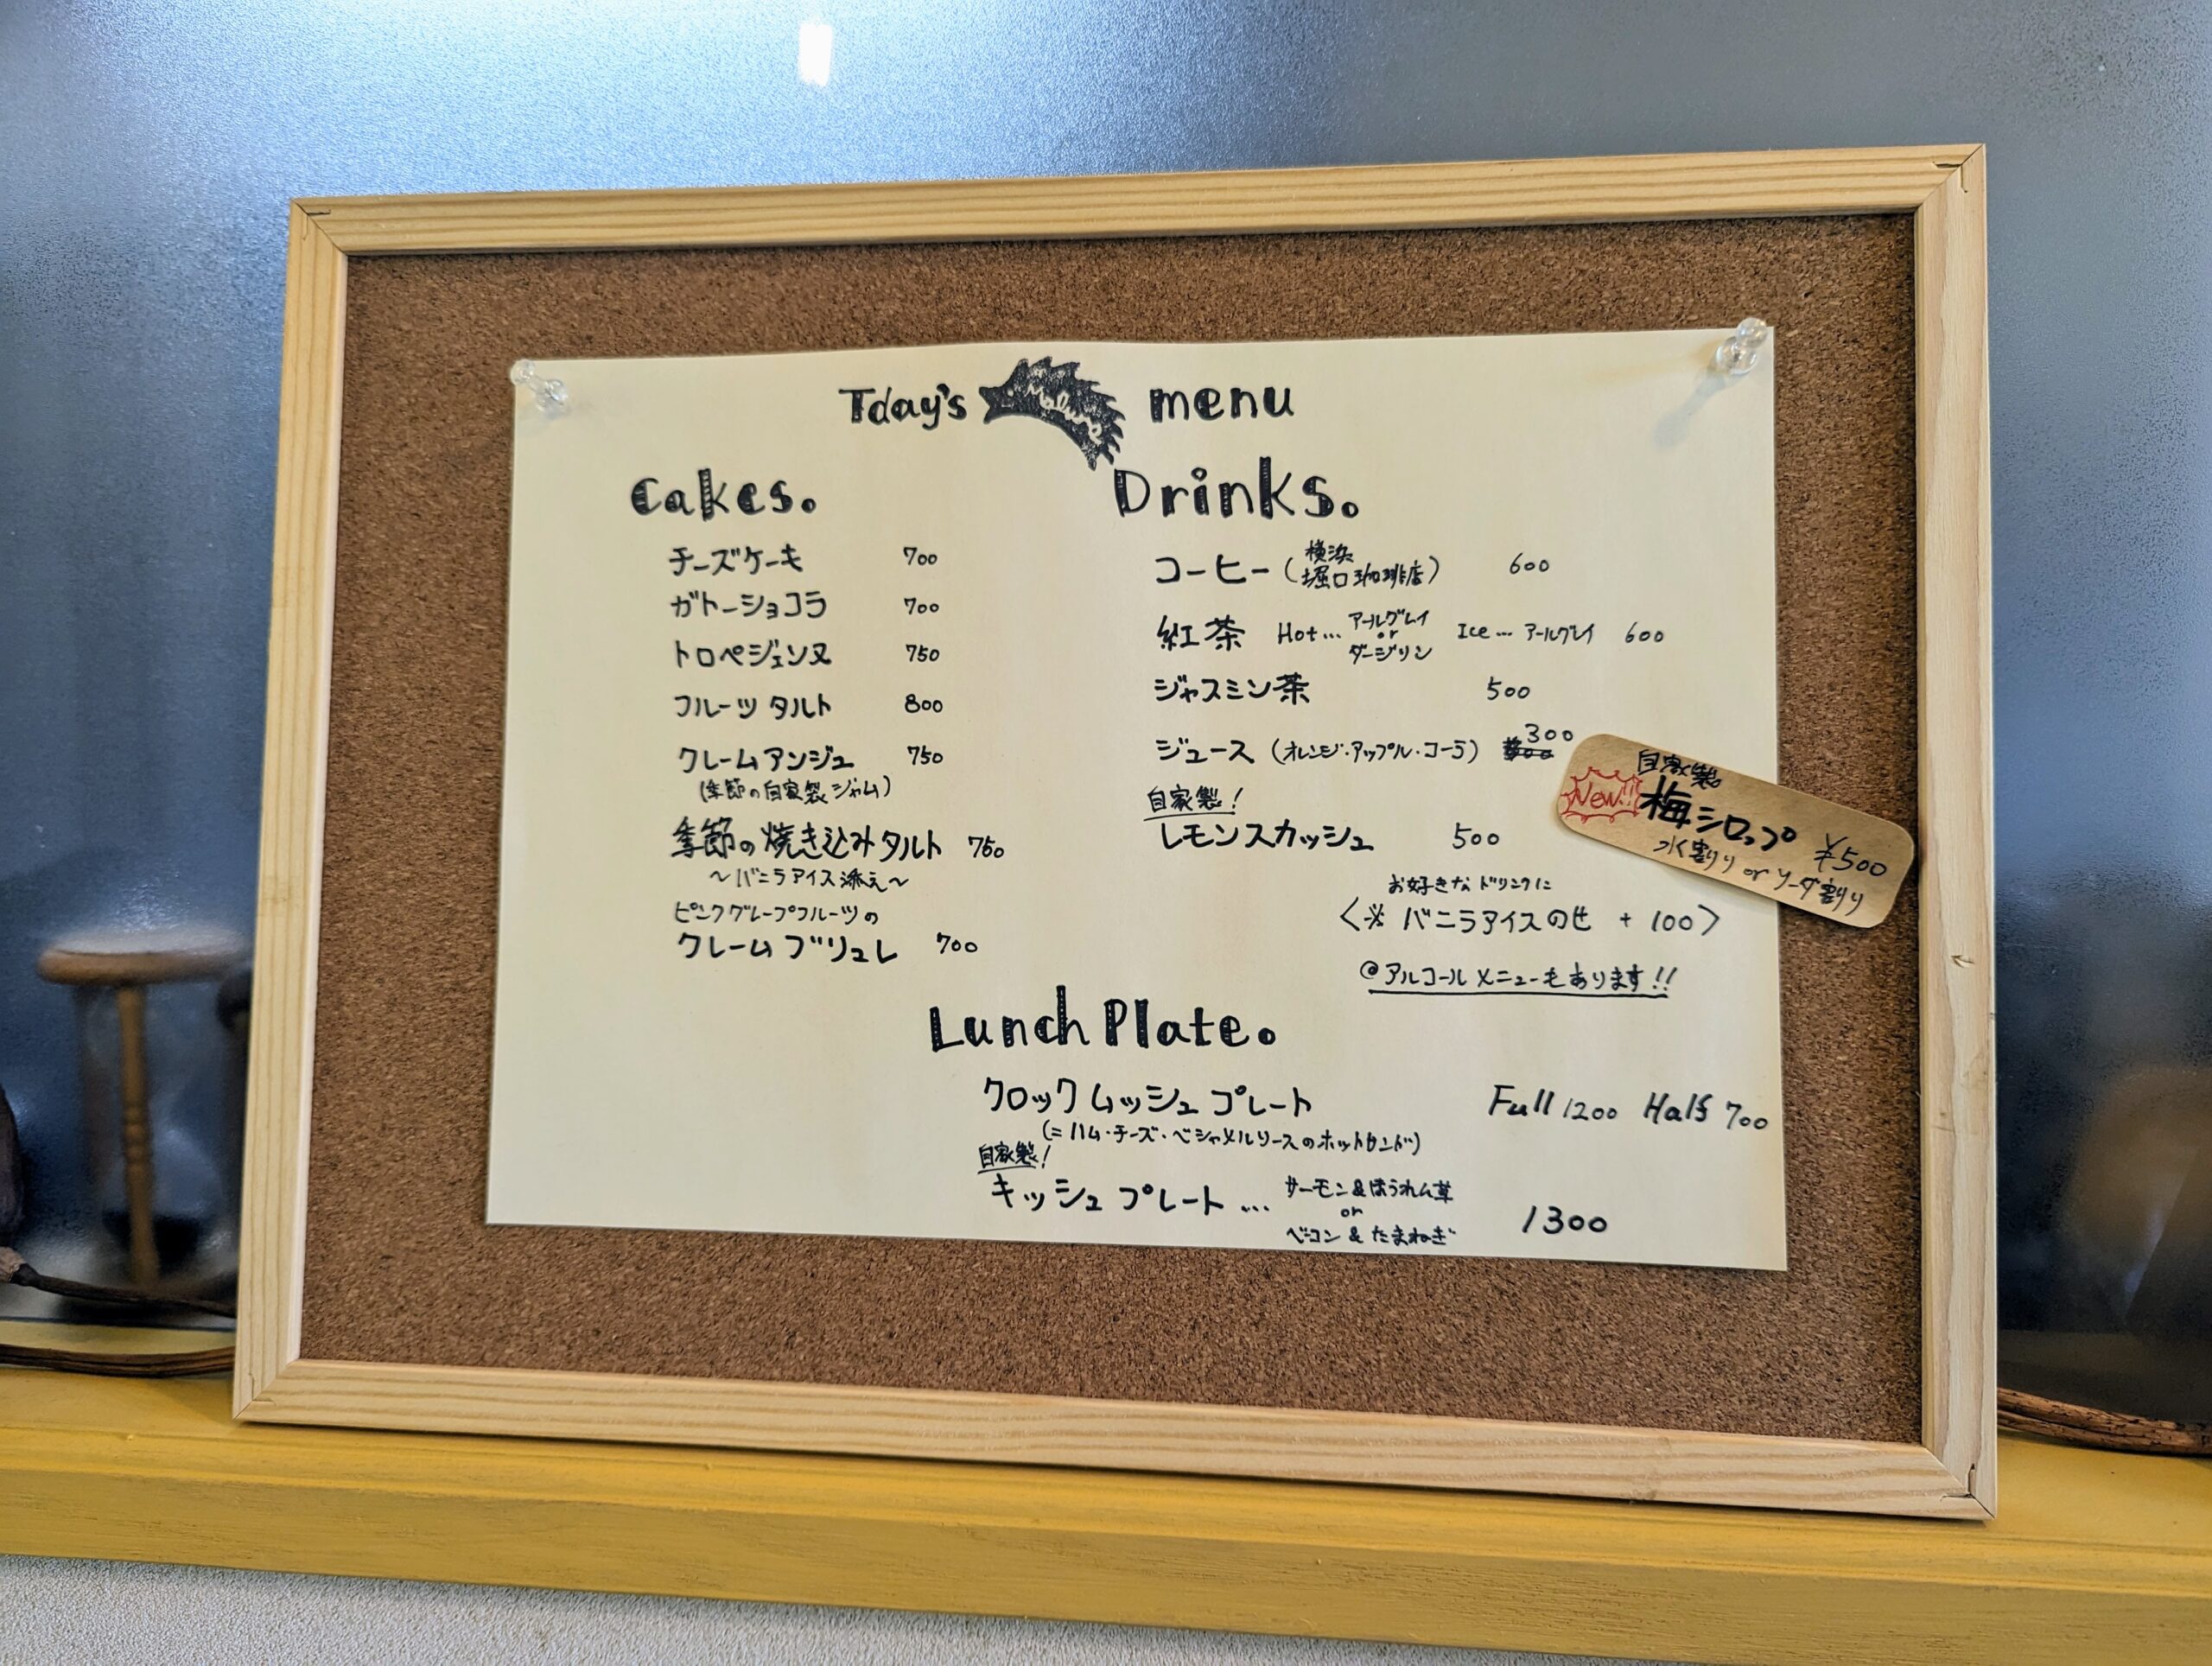 Tday's menu
Cakes.
チーズケーキ 700
ガトーショコラ 700
トロペジェンヌ 750
フルーツタルト 800
クレームアンジュ 750
(季節の自家製ジャム)
季節の焼き込みタルト 750
～バニラアイス添え～
ピンクグレープフルーツの
クレームブリュレ 700
Drinks.
コーヒー (横浜 堀口珈琲店) 600
紅茶 Hot... アールグレイ or ダージリン Ice... アールグレイ 600
ジャスミン茶 500
ジュース (オレンジ・アップル・コーラ) 300
自家製!
レモンスカッシュ 500
お好きなドリンクに
〈※ バニラアイスのせ + 100〉
@アルコールメニューもあります!!
自家製
New!! 梅シロップ ¥500
水割り or ソーダ割り
Lunch Plate.
クロックムッシュプレート Full 1200 Half 700
(=ハム・チーズ・ベシャメルソースのホットサンド)
自家製!
キッシュプレート ... サーモン&ほうれん草 or ベーコン&たまねぎ 1300